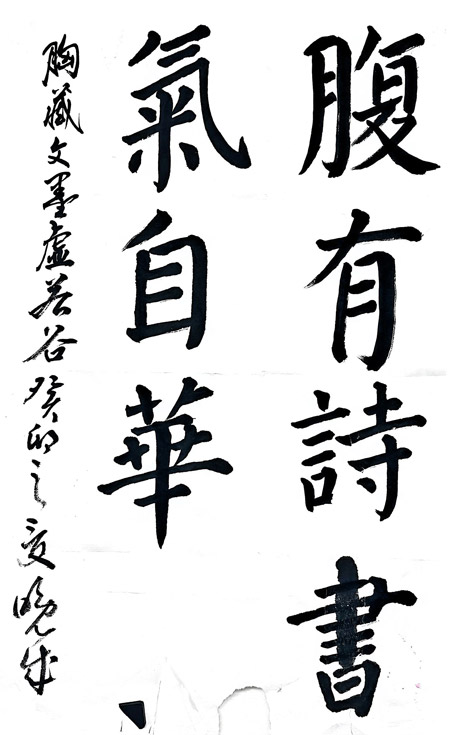 腹有詩書
氣自華
胸藏文墨虛若谷癸卯之夏成